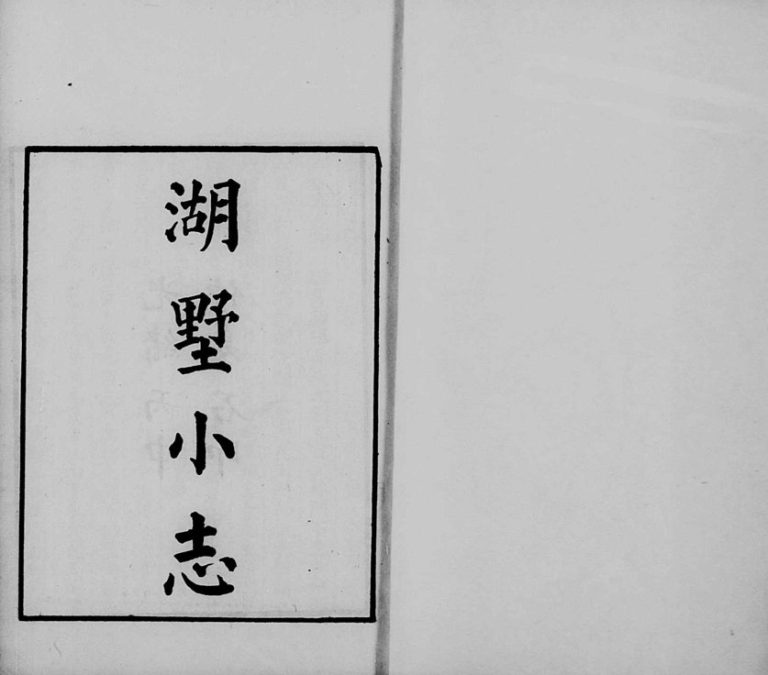 湖墅小志